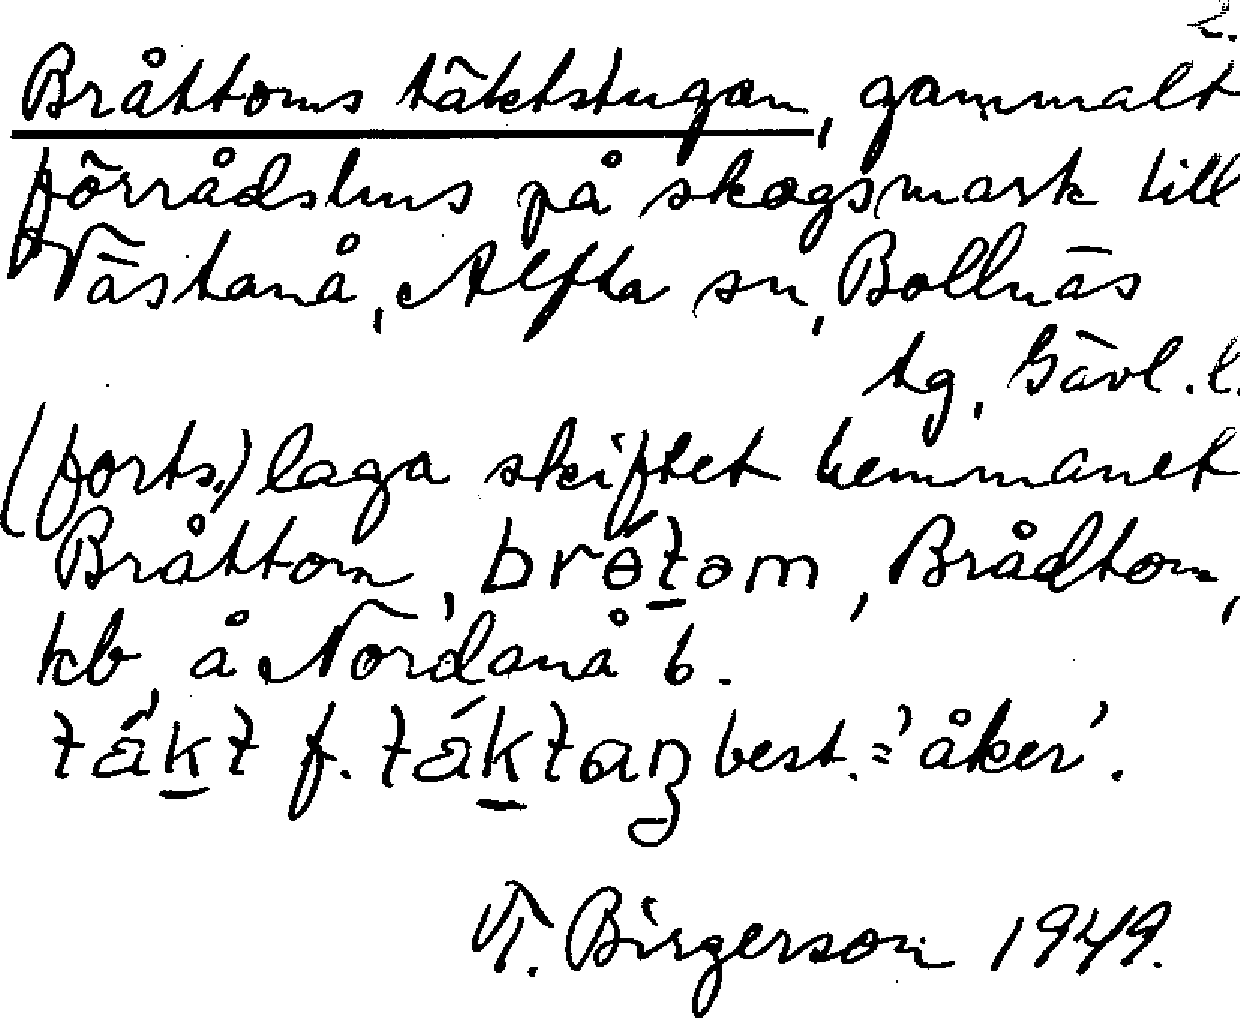 2.
Bråttoms täktstugan, gammalt
förrådshus på skogsmark till
Västanå, Alfta sn, Bollnäs
tg, Gävl. l.
(forts.) laga skiftet hemmanet
Bråttom, brɵ́təm, Brådtom,
kb, å Nordanå b.
tä́kt f. tä́ktaŋ best. = 'åker'.
T. Birgerson 1949.